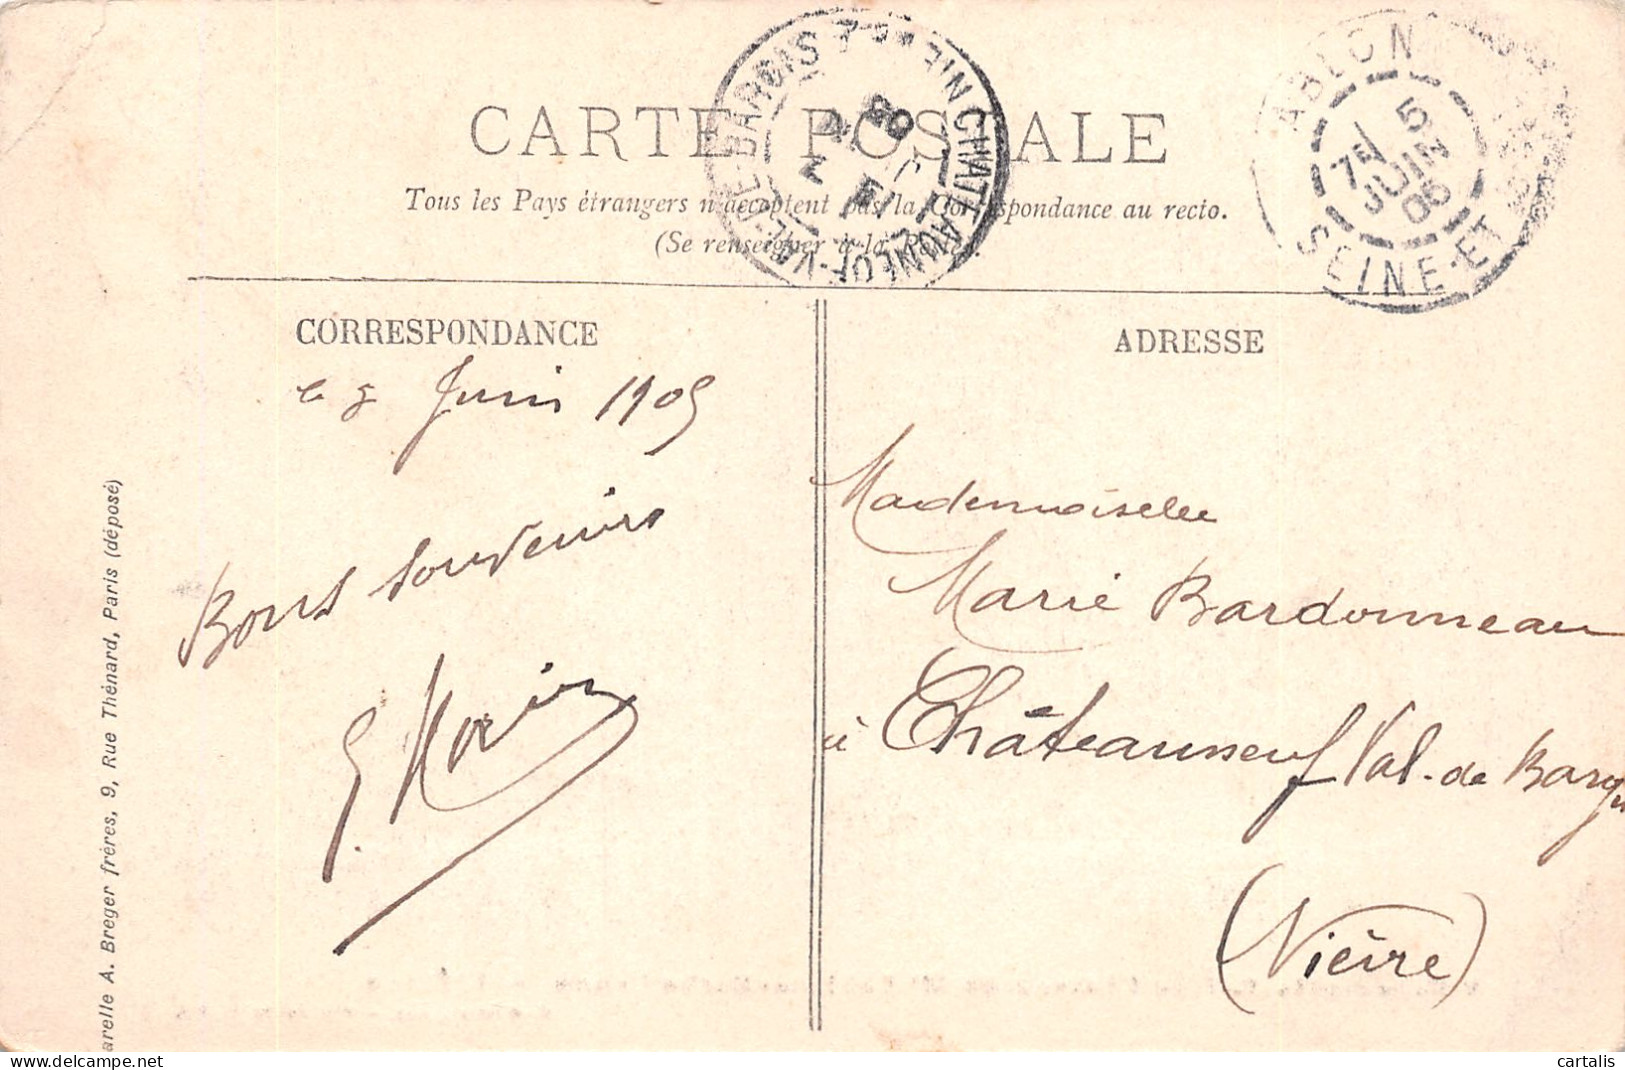 CARTE POSTALE
Tous les Pays étrangers n'acceptent pas la Correspondance au recto.
(Se renseigner à la Poste)
ABLON
5
JUIN
05
SEINE-ET
CHATEAUNEUF-VAL-DE-BARGIS
CORRESPONDANCE
ADRESSE
le 5 Juin 1905
Bons souvenirs
Mademoiselle
Marie Bardonneau
à Châteauneuf Val-de Barg
(Nièvre)
arelle A. Breger frères, 9, Rue Thénard, Paris (déposé)
cartalis